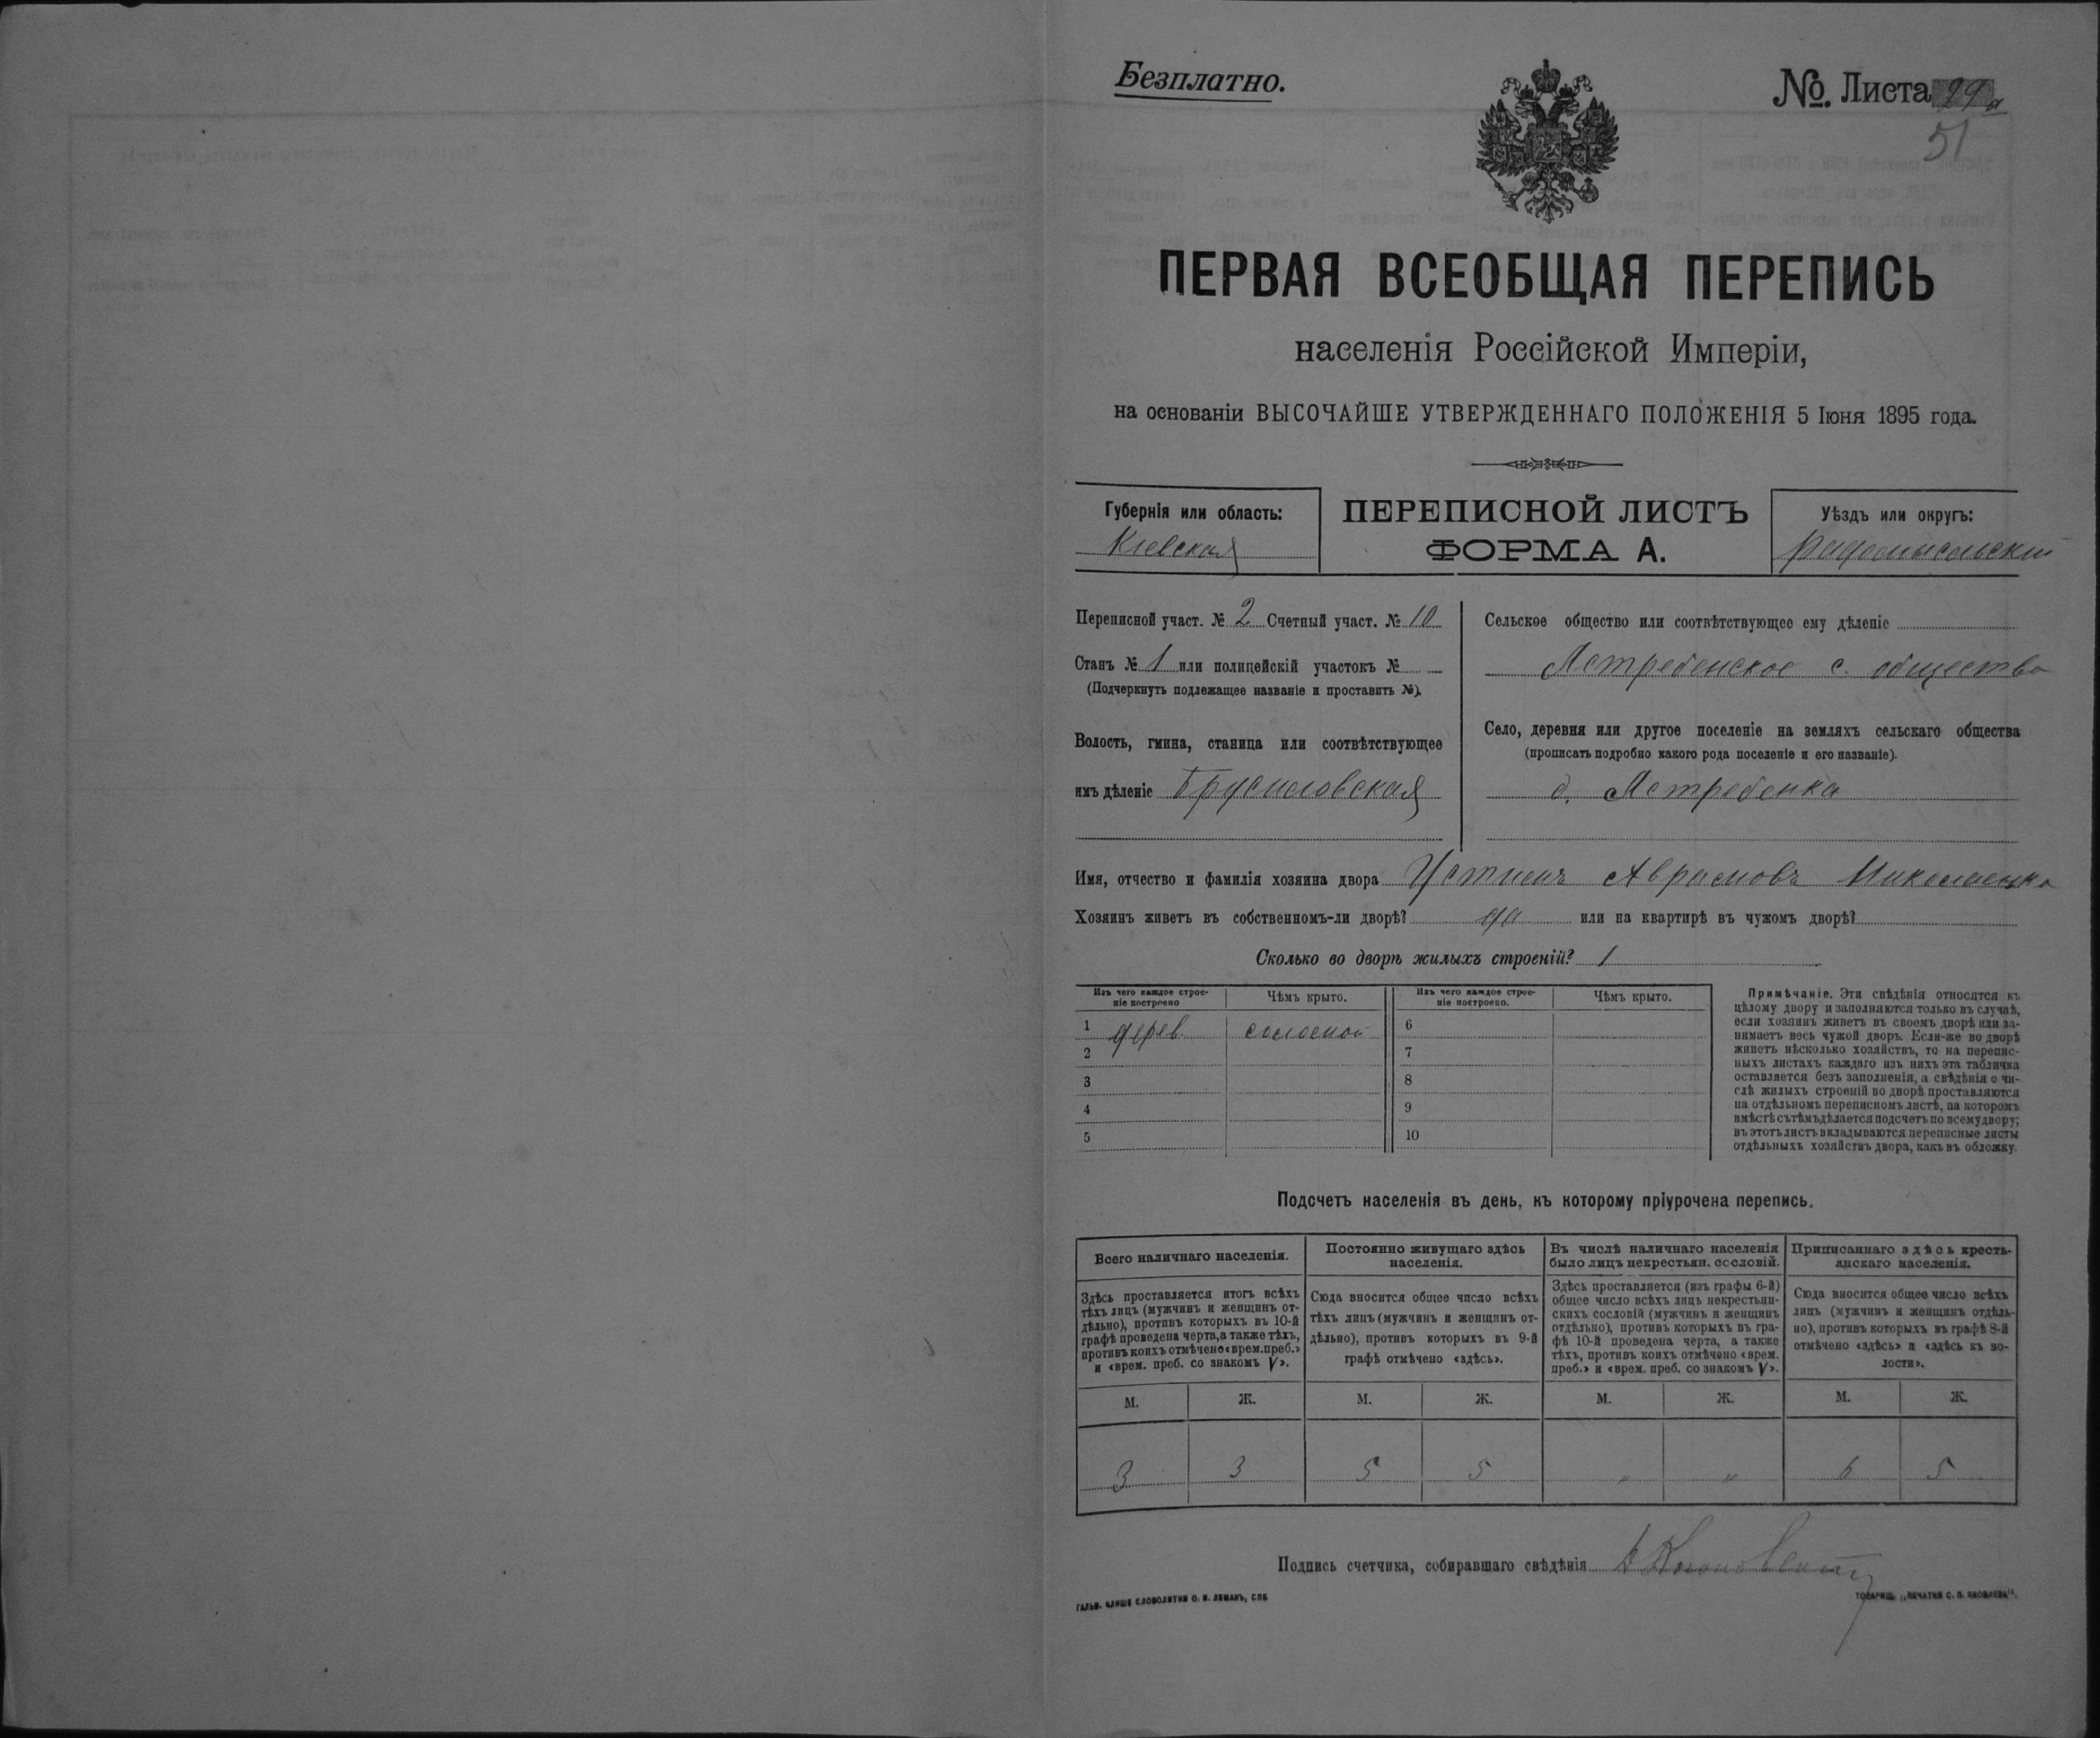 Безплатно.
№. Листа
51
ПЕРВАЯ ВСЕОБЩАЯ ПЕРЕПИСЬ
населенія Россійской Имперіи,
на основаніи ВЫСОЧАЙШЕ УТВЕРЖДЕННАГО ПОЛОЖЕНІЯ 5 Іюня 1895 года.
Губернія или область:
Кіевская
ПЕРЕПИСНОЙ ЛИСТЪ
ФОРМА А.
Уѣздъ или округъ:
Радомысльскій
Переписной участ. № 2 Счетный участ. № 10
Станъ № 1 или полицейскій участокъ №
(Подчеркнуть подлежащее названіе и проставить №).
Волость, гмина, станица или соотвѣтствующее
имъ дѣленіе Брусиловская
Сельское общество или соотвѣтствующее ему дѣленіе
Ястребенское с. общество
Село, деревня или другое поселеніе на земляхъ сельскаго общества
(прописать подробно какого рода поселеніе и его названіе).
д. Ястребенка
Имя, отчество и фамилія хозяина двора Устинъ Аврамовъ Николаенко
Хозяинъ живетъ въ собственномъ-ли дворѣ? да или на квартирѣ въ чужомъ дворѣ?
Сколько во дворѣ жилыхъ строеній? 1
Изъ чего каждое строе-
ніе построено
Чѣмъ крыто.
Изъ чего каждое строе-
ніе построено.
Чѣмъ крыто.
1 дерев. соломой 6
2 7
3 8
4 9
5 10
Примѣчаніе. Эти свѣдѣнія относятся къ
цѣлому двору и заполняются только въ случаѣ,
если хозяинъ живетъ въ своемъ дворѣ или за-
нимаетъ весь чужой дворъ. Если-же во дворѣ
живетъ нѣсколько хозяйствъ, то на перепис-
ныхъ листахъ каждаго изъ нихъ эта табличка
оставляется безъ заполненія, а свѣдѣнія о чи-
слѣ жилыхъ строеній во дворѣ проставляются
на отдѣльномъ переписномъ листѣ, на которомъ
вмѣстѣ съ тѣмъ дѣлается подсчетъ по всему двору;
въ этотъ листъ вкладываются переписные листы
отдѣльныхъ хозяйствъ двора, какъ въ обложку.
Подсчетъ населенія въ день, къ которому пріурочена перепись.
Всего наличнаго населенія.
Здѣсь проставляется итогъ всѣхъ
тѣхъ лицъ (мужчинъ и женщинъ от-
дѣльно), противъ которыхъ въ 10-й
графѣ проведена черта, а также тѣхъ,
противъ коихъ отмѣчено «врем. преб.»
и «врем. преб. со знакомъ V».
Постоянно живущаго здѣсь
населенія.
Сюда вносится общее число всѣхъ
тѣхъ лицъ (мужчинъ и женщинъ от-
дѣльно), противъ которыхъ въ 9-й
графѣ отмѣчено «здѣсь».
Въ числѣ наличнаго населенія
было лицъ некрестьян. сословій.
Здѣсь проставляется (изъ графы 6-й)
общее число всѣхъ лицъ некрестьян-
скихъ сословій (мужчинъ и женщинъ
отдѣльно), противъ которыхъ въ гра-
фѣ 10-й проведена черта, а также
тѣхъ, противъ коихъ отмѣчено «врем.
преб.» и «врем. преб. со знакомъ V».
Приписаннаго здѣсь кресть-
янскаго населенія.
Сюда вносится общее число всѣхъ
лицъ (мужчинъ и женщинъ отдѣль-
но), противъ которыхъ въ графѣ 8-й
отмѣчено «здѣсь» и «здѣсь къ во-
лости».
М. Ж. М. Ж. М. Ж. М. Ж.
3 3 5 5 " " 6 5
Подпись счетчика, собиравшаго свѣдѣнія
ГАЛЬВ. КЛИШЕ СЛОВОЛИТНИ О. И. ЛЕМАНЪ, СПБ
ТОВАРИЩ. „ПЕЧАТНЯ С. П. ЯКОВЛЕВА“.